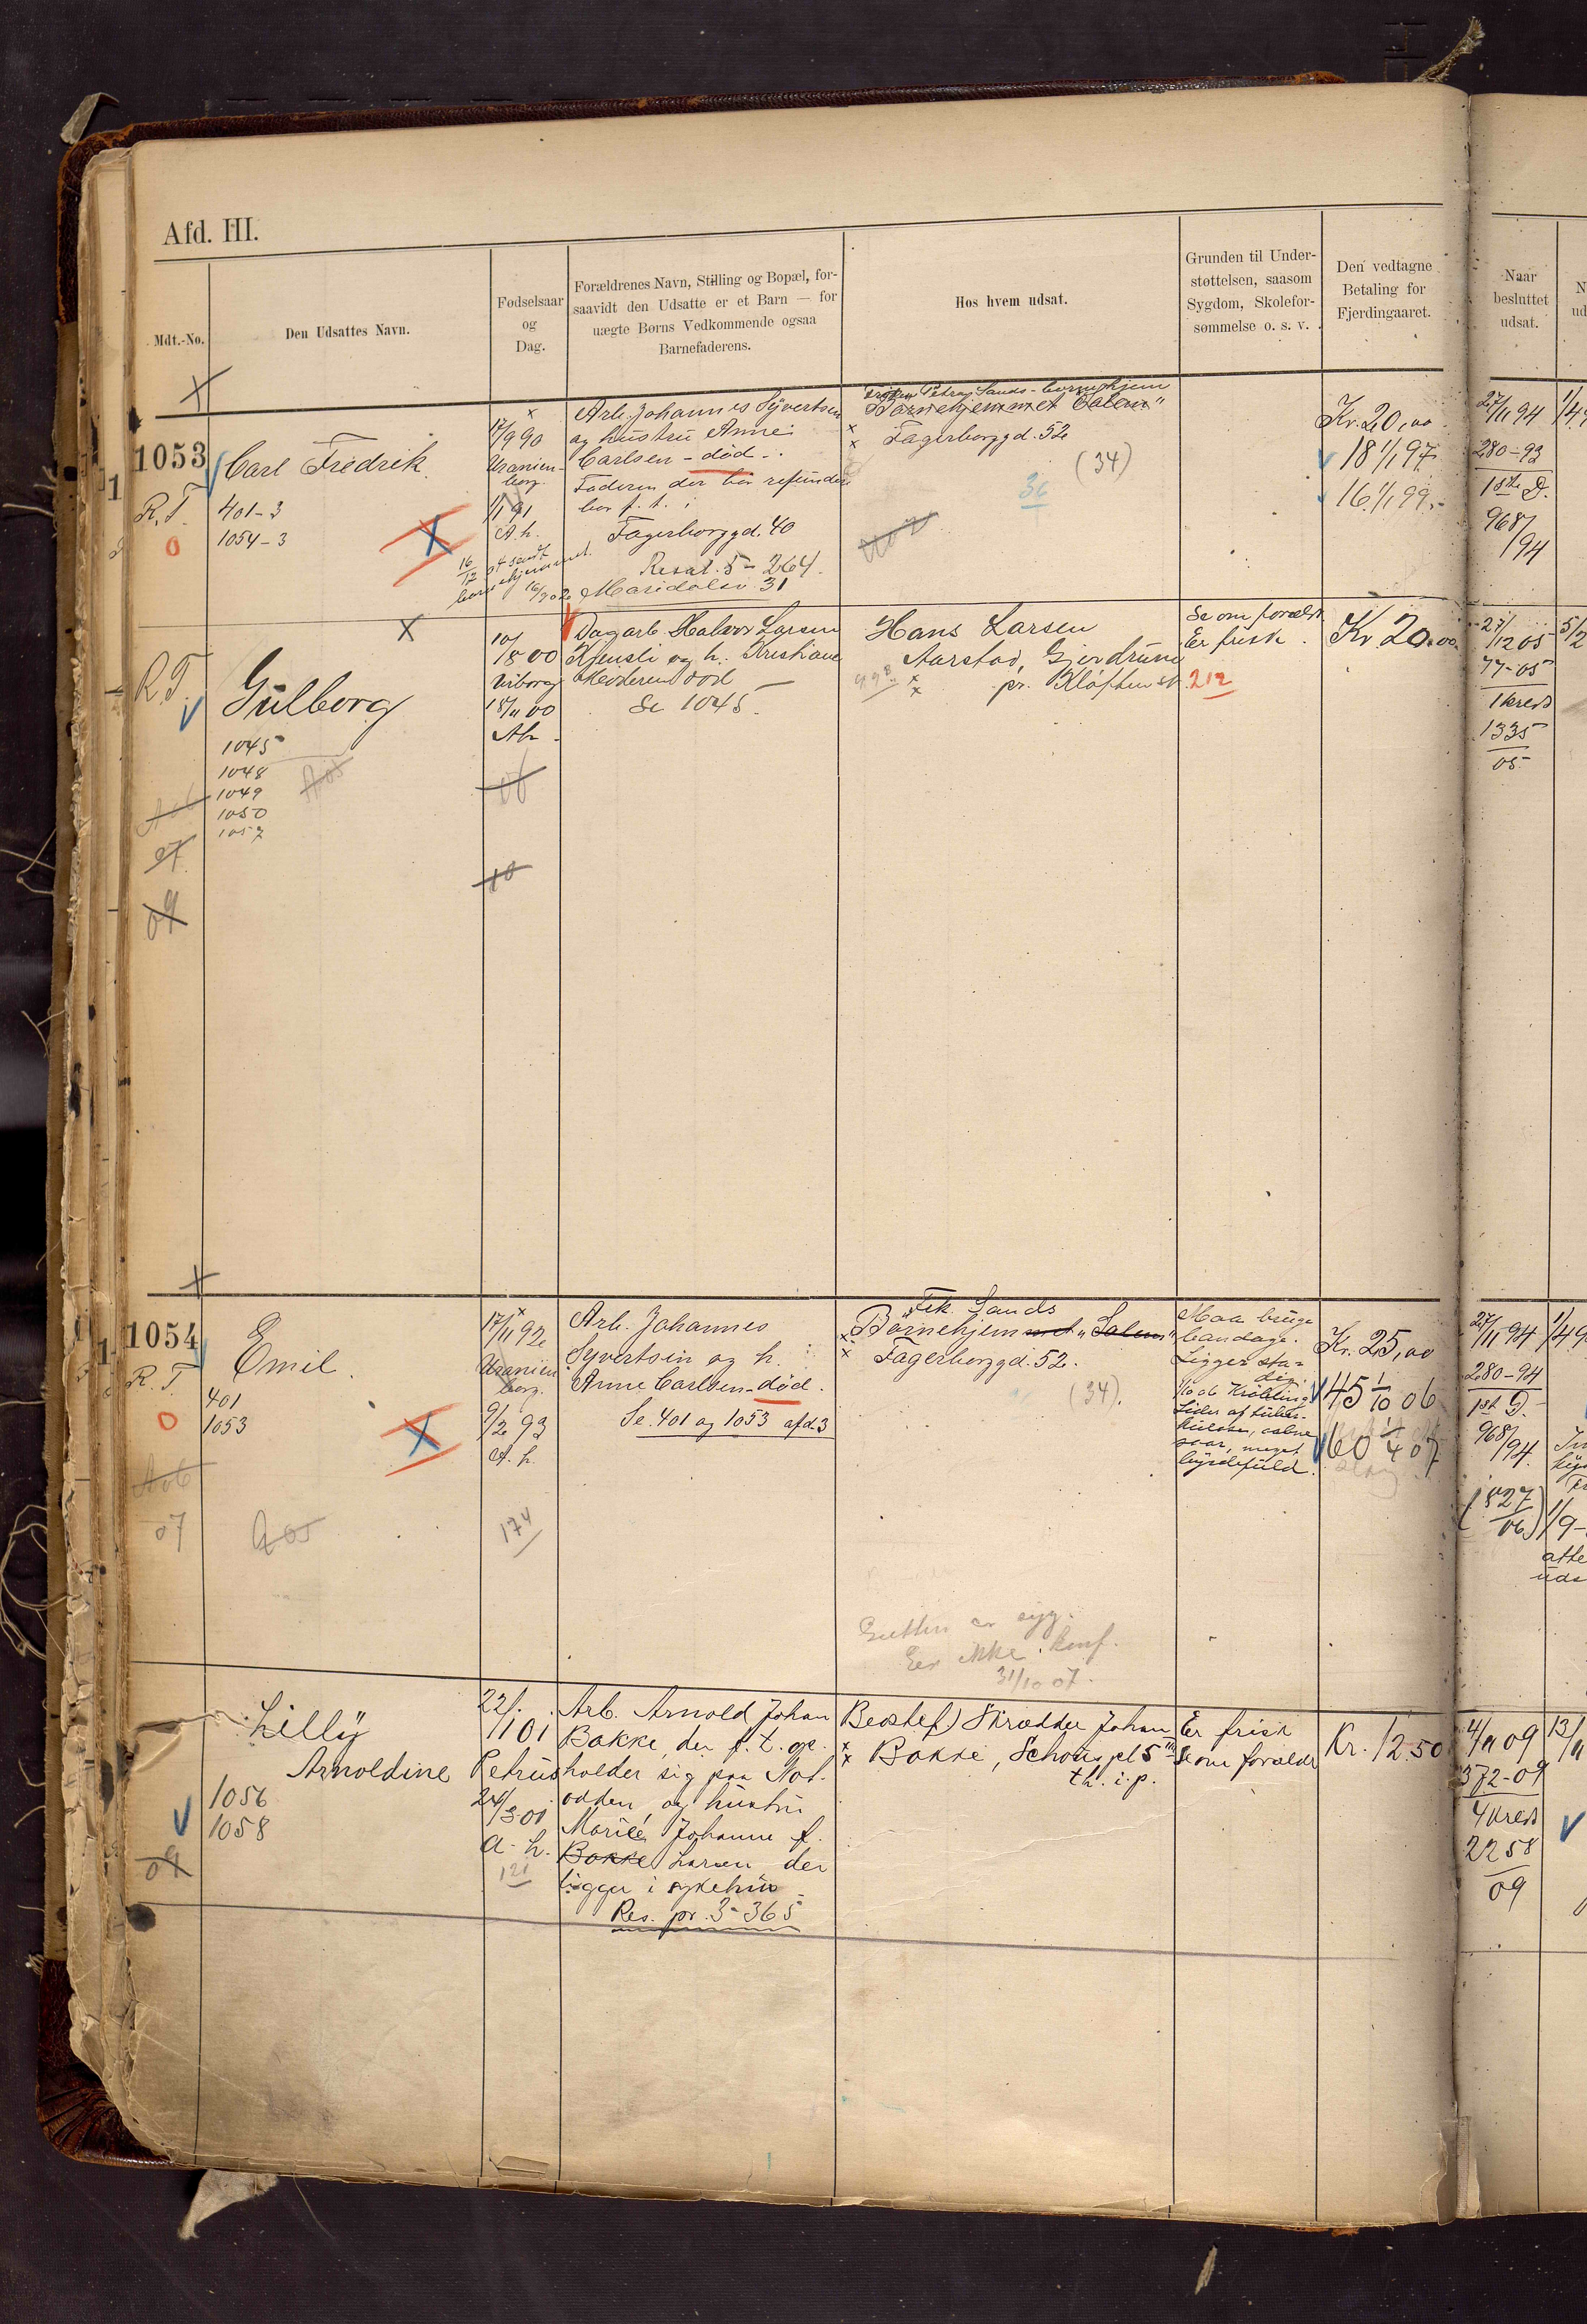 Afd. III.
Mdt.-No.
Den Udsattes Navn.
Fødselsaar
og
Dag.
Forældrenes Navn, Stilling og Bopæl, for-
saavidt den Udsatte er et Barn — for
uægte Børns Vedkommende ogsaa
Barnefaderens.
Hos hvem udsat.
Grunden til Under-
støttelsen, saasom
Sygdom, Skolefor-
sømmelse o. s. v.
Den vedtagne
Betaling for
Fjerdingaaret.
Naar
besluttet
udsat.
1053
R.T.
0
Carl Fredrik
401-3
1054-3
17/9 90
Uranien-
borg
1/1 91
A. h.
Arb. Johannes Syvertsen
og hustru Anne
Carlsen - død -
Faderen der bør refundere
bor p. t. i
Fagerborggd. 40
Resol. 5 - 264.
Maridalsv. 31
Frøken Petra Sands børnehjem
Børnehjemmet "Salem"
Fagerborggd. 52
(34)
36
Kr. 20,00
18 1/1 97
16 1/1 99
27/11 94
280-93
1ste D.
968/94
R.T.
Gulborg
1045
1048
1049
1050
1057
07
09
10/1 800
Viborg
18/11 00
Ah
Dagarb Halvor Larsen
Kjensli og h. Kristiane
Moderen død
Se 1045
Hans Larsen
Aarstad, Gjerdrum
pr. Kløften st.
212
Se om foræld.
Er frisk.
Kr 20.00
27/12 05
77-05
1 kreds
1335
05
1054
R. T.
0
Emil.
401
1053
07
17/11 92
Uranien
borg.
9/2 93
A. h.
174
Arb. Johannes
Syvertsen og h.
Anne Carlsen - død.
Se 401 og 1053 afd. 3
Frk. Sands
Børnehjemmet "Salem"
Fagerborggd. 52.
(34).
Gutten er syg.
Er ikke konf.
31/10 07.
Maa bruge
bandage.
Ligger sta-
dig.
1/10 06 Krøbling
Lider af tuber-
kulose, aabne
saar, meget
byrdefuld.
Kr. 25,00
45 1/10 06
60 1/4 07
27/11 94
280-94
1st D.
968/94.
(827/06)
Lilly
Arnoldine
1056
1058
09
22/1 01
Petrus
24/3 01
a - h.
121
Arb. Arnold Johan
Bakke, der p. t. op-
holder sig paa Not-
odden, og hustru
Marie Johanne f.
Bakke Larsen der
ligger i sykehus
Res. pr. 3 - 365
Bestef) Skrædder Johan
Bakke, Schous pl 5
th. i. p.
Er frisk
Se om forældr
Kr. 12.50
4/11 09
372-09
4 kreds
2258
09